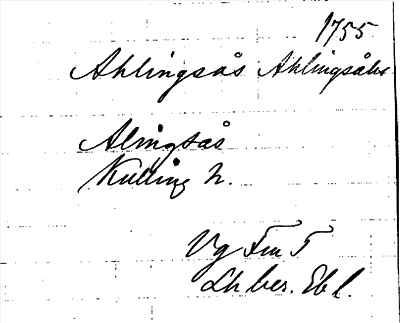 1755
Ahlingsås Ahlingsåhs
Alingsås
Kulling h.
Vg Fru T
Lh ber. Eb l.